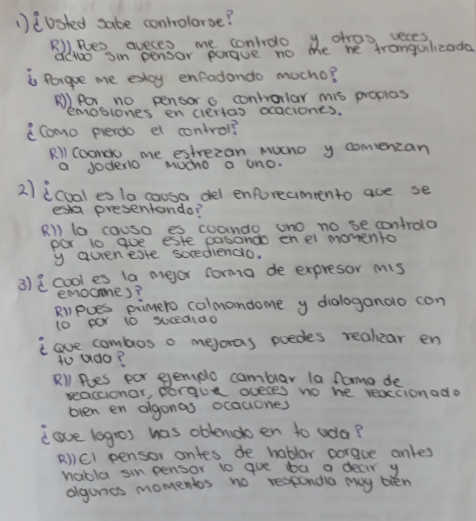 1) ¿Usted sabe controlarse?
R)) Pues aveces me controlo y otros veces
actuo sin pensar porque no me he tranquilizado
¿Porque me estoy enfadando mucho?
R)) Por no pensar o controlar mis propias
emosiones en ciertas ocaciones.
¿Como pierdo el control?
R)) Coando me estrezan mucho y comienzan
a joderlo mucho a uno.
2) ¿Cual es la causa del enfurecimiento que se
esta presentando?
R)) la causa es cuando uno no se controla
por lo que este pasando en el momento
y quien este sucediendo.
3) ¿Cual es la mejor forma de expresor mis
emociones?
R)) Pues primero calmandome y dialogando con
lo por lo sucedido
¿que cambios o mejoras puedes realizar en
tu vida?
R)) Pues por ejemplo cambiar la forma de
reaccionar, porque aveces no he reaccionado
bien en algunas ocaciones
¿que logros has obtenido en tu vida?
R)) El pensar antes de hablar porque antes
habla sin pensar lo que iba a decir y
algunos momentos no respondia muy bien